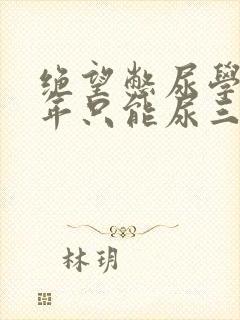 绝望憋尿學
年只能尿三
林玥